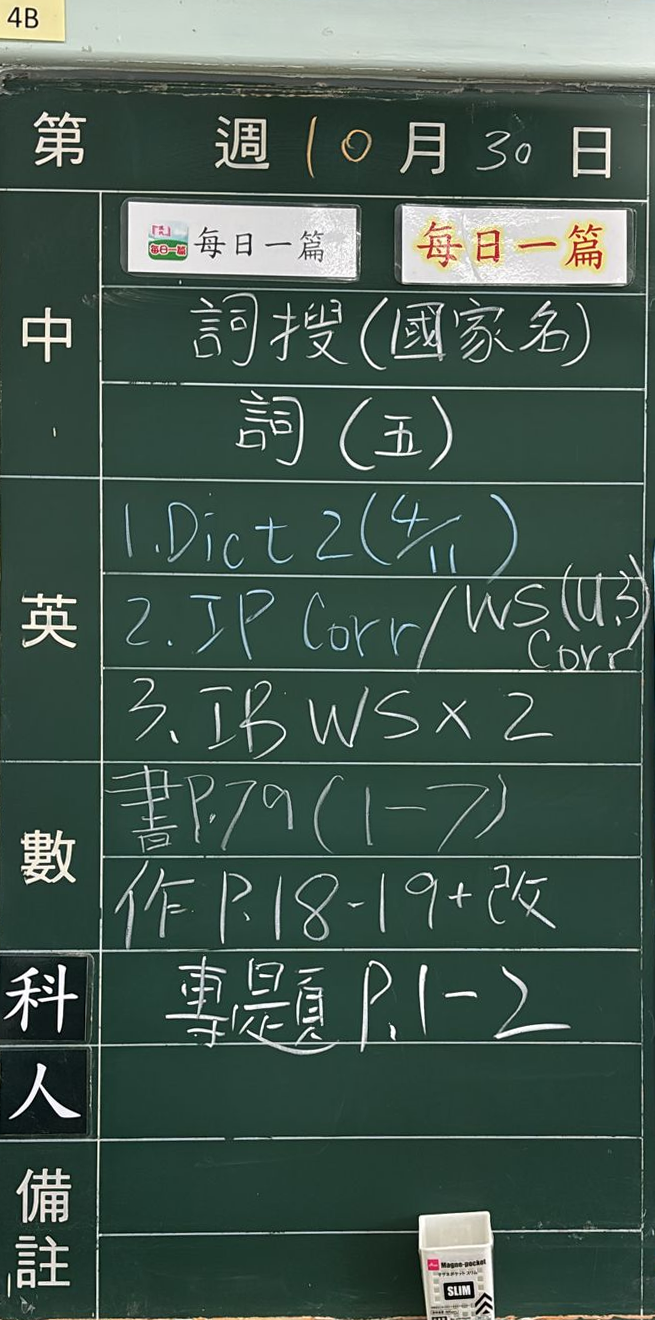 4B
第 週 10 月 30 日
中
每日一篇 每日一篇
詞搜(國家名)
詞(五)
英
1. Dict 2 (4/11)
2. IP Corr / WS (U.3) Corr
3. IB WS x 2
數
書P.79(1-7)
作P.18-19+改
科
專題 P.1-2
人
備註
Magne-pocket
SLIM